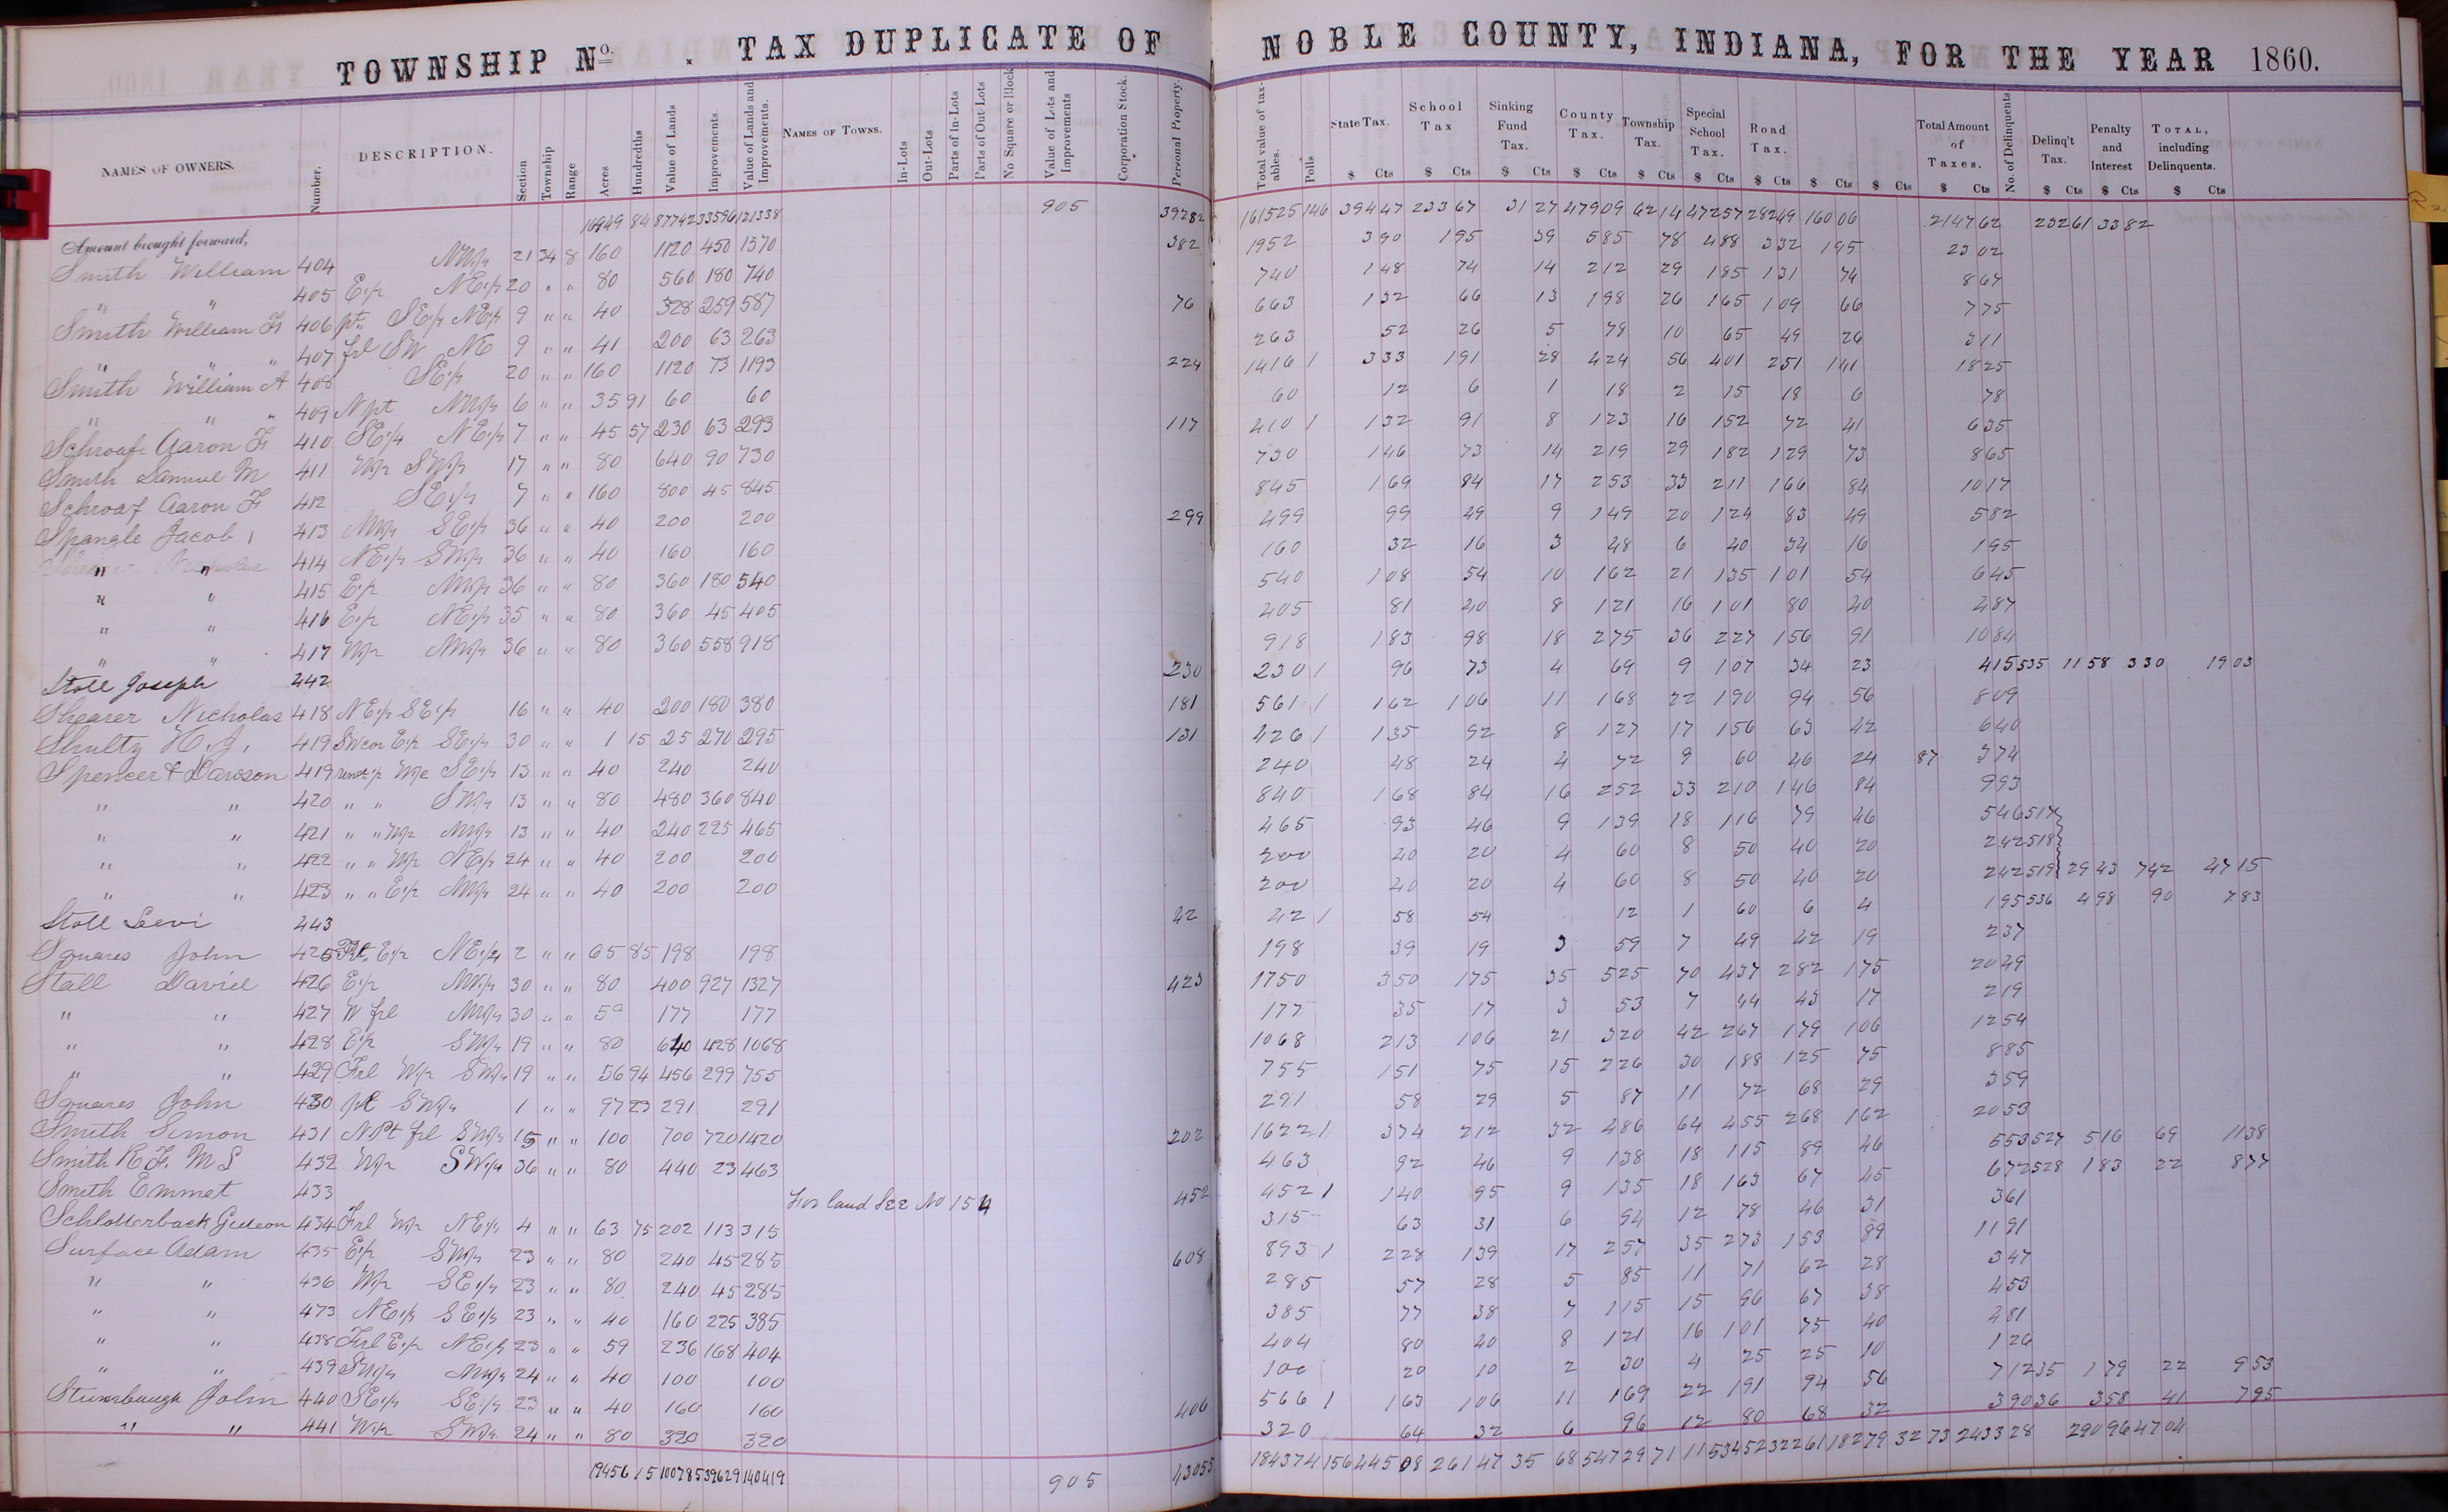 TOWNSHIP No. . TAX DUPLICATE OF NOBLE COUNTY, INDIANA, FOR THE YEAR 1860.
NAMES OF OWNERS. Number. DESCRIPTION. Section Township Range Acres Hundredths Value of Lands Improvements Value of Lands and Improvements. NAMES OF TOWNS. In-Lots Out-Lots Parts of In-Lots Parts of Out Lots No Square or Block Value of Lots and Improvements Corporation Stock. Personal Property. Total value of taxables. Polls State Tax. School Tax Sinking Fund Tax. County Tax. Township Tax. Special School Tax. Road Tax. Total Amount of Taxes. No. of Delinquents Delinq't Tax. Penalty and Interest TOTAL, including Delinquents.
$ Cts $ Cts $ Cts $ Cts $ Cts $ Cts $ Cts $ Cts $ Cts $ Cts $ Cts $ Cts $ Cts
Amount brought forward, 84 87742 33596 121338 905 39282 161525 146 39447 23367 3127 47909 6214 47257 28249 16006 214762 23261 3382
Smith William 404 NW1/4 21 34 8 160 1120 450 1570 382 1952 390 195 39 585 78 488 332 195 2302
" " 405 E1/2 NE1/4 20 " " 80 560 180 740 740 148 74 14 212 29 185 131 74 867
Smith William F 406 pt SE1/4 NE1/4 9 " " 40 328 259 587 76 663 132 66 13 198 26 165 109 66 775
" " " 407 frl SW NE 9 " " 41 200 63 263 263 52 26 5 78 10 65 49 26 311
Smith William A 408 SE1/4 20 " " 160 1120 73 1193 224 1416 1 333 191 28 424 56 401 251 141 1825
" " " 409 N pt NW1/4 6 " " 35 91 60 60 60 12 6 1 18 2 15 18 6 78
Schroaf Aaron F 410 SE1/4 NE1/4 7 " " 45 57 230 63 293 117 410 1 132 91 8 123 16 152 72 41 635
Smith Samuel M 411 W1/2 SW1/4 17 " " 80 640 90 730 730 146 73 14 219 29 182 129 73 865
Schroaf Aaron F 412 SE1/4 7 " " 160 800 45 845 845 169 84 17 253 33 211 166 84 1017
Spangle Jacob 413 NW1/4 SE1/4 36 " " 40 200 200 299 499 99 49 9 149 20 124 83 49 582
" " 414 NE1/4 SW1/4 36 " " 40 160 160 160 32 16 3 48 6 40 34 16 195
" " 415 E1/2 NW1/4 36 " " 80 360 180 540 540 108 54 10 162 21 135 101 54 645
" " 416 E1/2 NE1/4 35 " " 80 360 45 405 405 81 40 8 121 16 101 80 40 487
" " 417 W1/2 NW1/4 36 " " 80 360 558 918 918 183 98 18 275 36 227 156 91 1084
Stoll Joseph 442 230 230 1 96 73 4 69 9 107 34 23 415 535 1158 330 1903
Shearer Nicholas 418 NE1/4 SE1/4 16 " " 40 200 180 380 181 561 1 162 106 11 168 22 190 94 56 809
Shultz H. J. 419 SW cor E1/2 SE1/4 30 " " 1 15 25 270 295 131 426 1 135 92 8 127 17 156 63 42 640
Spencer & Dawson 419 W1/2 SE1/4 13 " " 40 240 240 240 48 24 4 72 9 60 46 24 87 374
" " 420 " " SW1/4 13 " " 80 480 360 840 840 168 84 16 252 33 210 146 84 993
" " 421 " " W1/2 NW1/4 13 " " 40 240 225 465 465 93 46 9 139 18 116 79 46 546 517
" " 422 " " W1/2 NE1/4 24 " " 40 200 200 200 40 20 4 60 8 50 40 20 242 518
" " 423 " " E1/2 NW1/4 24 " " 40 200 200 200 40 20 4 60 8 50 40 20 242 519 2943 742 4715
Stoll Levi 443 42 42 1 58 54 12 1 60 6 4 195 536 498 90 783
Squares John 425 E1/2 NE1/4 2 " " 65 85 198 198 198 39 19 3 59 7 49 42 19 237
Stall David 426 E1/2 NW1/4 30 " " 80 400 927 1327 423 1750 350 175 35 525 70 437 282 175 2049
" " 427 W frl NW1/4 30 " " 59 177 177 177 35 17 3 53 7 44 43 17 219
" " 428 E1/2 SW1/4 19 " " 80 640 428 1068 1068 213 106 21 320 42 267 179 106 1254
" " 429 Frl W1/2 SW1/4 19 " " 56 94 456 299 755 755 151 75 15 226 30 188 125 75 885
Squares John 430 pt SW1/4 1 " " 97 23 291 291 291 58 29 5 87 11 72 68 29 359
Smith Simon 431 N Pt frl SW1/4 15 " " 100 700 720 1420 202 1622 1 374 212 32 486 64 455 268 162 2053
Smith R F. M S 432 W1/2 SW1/4 36 " " 80 440 23 463 463 92 46 9 138 18 115 89 46 553 527 516 69 1138
Smith Emmet 433 For land See No 154 452 452 1 140 95 9 135 18 163 67 45 672 528 183 22 877
Schlotterback Gideon 434 Frl W1/2 NE1/4 4 " " 63 75 202 113 315 315 63 31 6 94 12 78 46 31 361
Surface Adam 435 E1/2 SW1/4 23 " " 80 240 45 285 608 893 1 228 139 17 257 35 273 153 89 1191
" " 436 W1/2 SE1/4 23 " " 80 240 45 285 285 57 28 5 85 11 71 62 28 347
" " 473 NE1/4 SE1/4 23 " " 40 160 225 385 385 77 38 7 115 15 96 67 38 453
" " 438 Frl E1/2 NE1/4 23 " " 59 236 168 404 404 80 40 8 121 16 101 75 40 481
" " 439 SW1/4 NW1/4 24 " " 40 100 100 100 20 10 2 30 4 25 25 10 126
John 440 SE1/4 SE1/4 23 " " 40 160 160 406 566 1 163 106 11 169 22 191 94 56 712 35 179 22 953
" " 441 W1/2 SW1/4 24 " " 80 320 320 320 64 32 6 96 12 80 68 32 390 36 358 41 795
19456 15 100785 39629 140419 905 43055 184374 156 44508 26147 35 68 54729 71 11 53452 32261 18279 32 73 243328 29096 4704